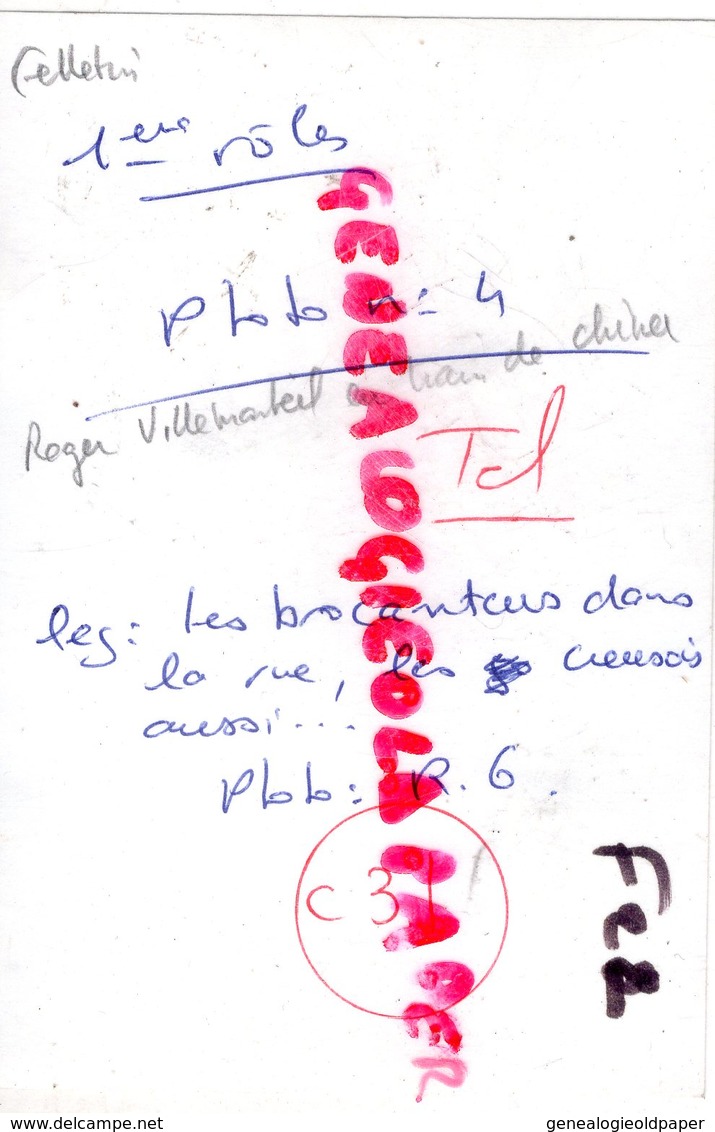 Felletin
1ers rôles
Photo n: 4
Roger Villemonteil en train de chiner
Tcl
leg: Les brocanteurs dans
la rue, les creusois
aussi...
Photo: R. 6.
C 31
F22
GENEALOGIEOLDPAPER
genealogieoldpaper